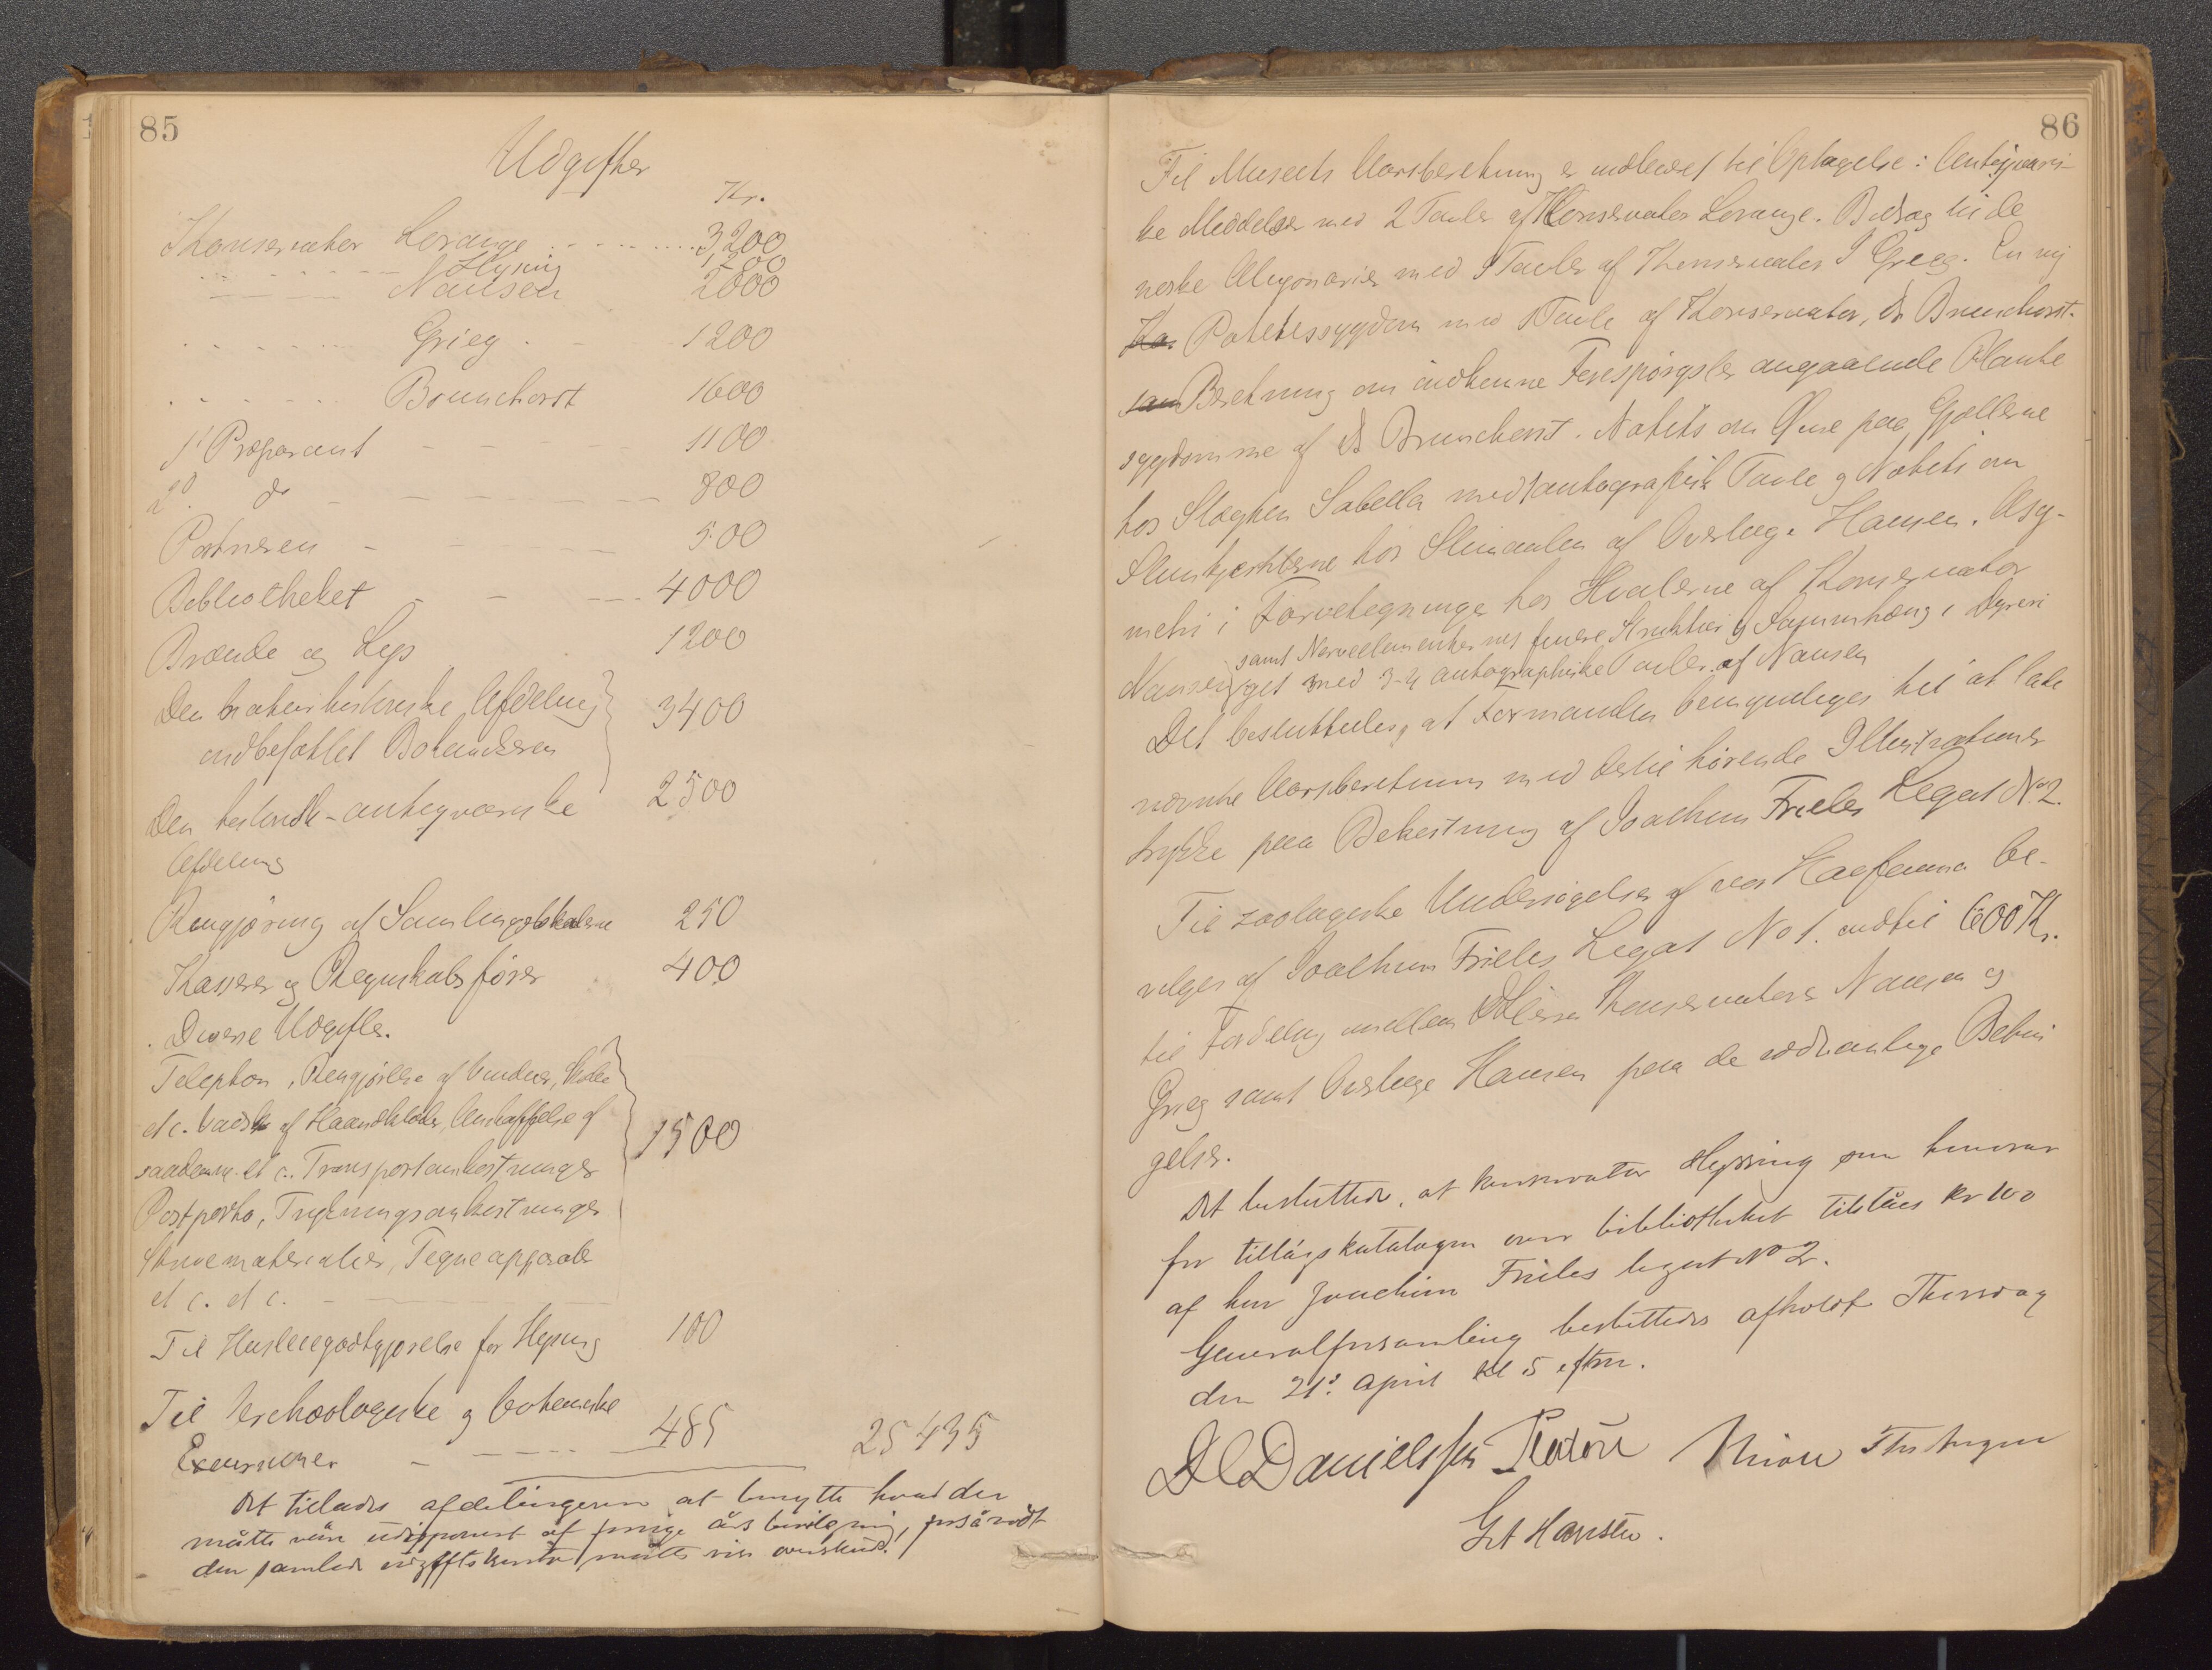 85
Udgifter
Kr.
Konservator Lorange . . . . . . . . . 3200
Hysing 1,200
Nansen 2000
Grieg . 1200
Brunchorst 1600
1' Præparant 1100
2' do 800
Portneren 500
Bibliotheket 4000
Brænde og Lys 1200
Den naturhistoriske Afdeling 3400
indbefattet Botanikeren
Den historisk-antiqvariske 2500
Afdeling
Rengjøring af Samlingslokalerne 250
Kasserer og Regnskabsfører 400
Diverse Udgifter.
Telephon, Rengjørelse af Vinduer,
etc. Vadsk af Haandklæder, Anskaffelse af 1500
saadanne etc.. Transportomkostninger
Postporto, Trykningsomkostninger
Skrivematerialier, Tegneapparater
etc. etc.
Til Huusleiegodtgjørelse for Hysing 100
Til Archæologiske og botaniske
Excursioner 485 25435
Det tillades afdelingerne at benytte hvad der
måtte være udisponert af forrige års bevilgning, forsåvidt
den samlede udgiftskonto måtte vise overskud.
86
Til Museets Aarsberetning er indleveret til Optagelse: Antiqvari-
ke Meddelelser med 2 Tavler af Konservator Lorange. Bidrag til de
norske Alcyonarier med Tavler af Konservator J Grieg. En ny
Potetessygdom med 1 Tavle af Konservator, Dr Brunchorst.
Beretning om indkomne Forespørgsler angaaende Plante
sygdomme af Dr Brunchorst. Notits om Øine paa Gjællerne
hos Slægten Sabella med 1 autografisk Tavle og Notits om
hos Slimaalen af Overlæge Hansen. Asy-
metri i Farvetegninge hos Hvalerne af Konservator
samt Nerveelementernes finere Struktur og Sammenhæng i Dyreri
Nansen get med 3-4 autographiske Tavler af Nansen
Det besluttedes, at Formanden bemyndiges til at lade
nævnte Aarsberetning med dertil hørende Illustrationer
trykke paa Bekostning af Joachim Frieles Legat No 2.
Til zoologiske Undersøgelser af vor Havfauna be-
vilges af Joachim Frieles Legat No 1. indtil 600 Kr.
til Fordeling mellem Konservatorer Nansen og
Grieg samt Overlæge Hansen paa de sædvanlige Betin
gelser.
Det besluttedes, at konservator Hysing som honorar
for tillægskatalogen over bibliotheket tilståes kr 100
af herr Joachim Frieles legat No 2.
Generalforsamling besluttedes afholdt Thorsdag
den 21d: april kl 5 eftm.
DC Danielssen